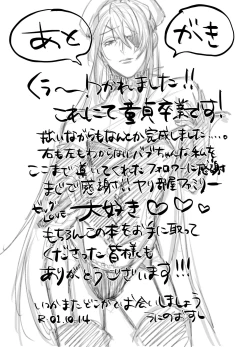 あとがき
くぅ～！つかれました!!
これにて童貞卒業です！
拙いながらもなんとか完成しました…。
右も左もわからないバブちゃんな私を
ここまで導いてくれたフォロワーに感謝
まじで感謝です、ヤリ部屋ファミリー
大好き♡♡♡
もちろんこの本をお手に取って
くださった皆様も
ありがとうございます!!!
いつかまたどこかでお会いしましょう
R.01.10.14